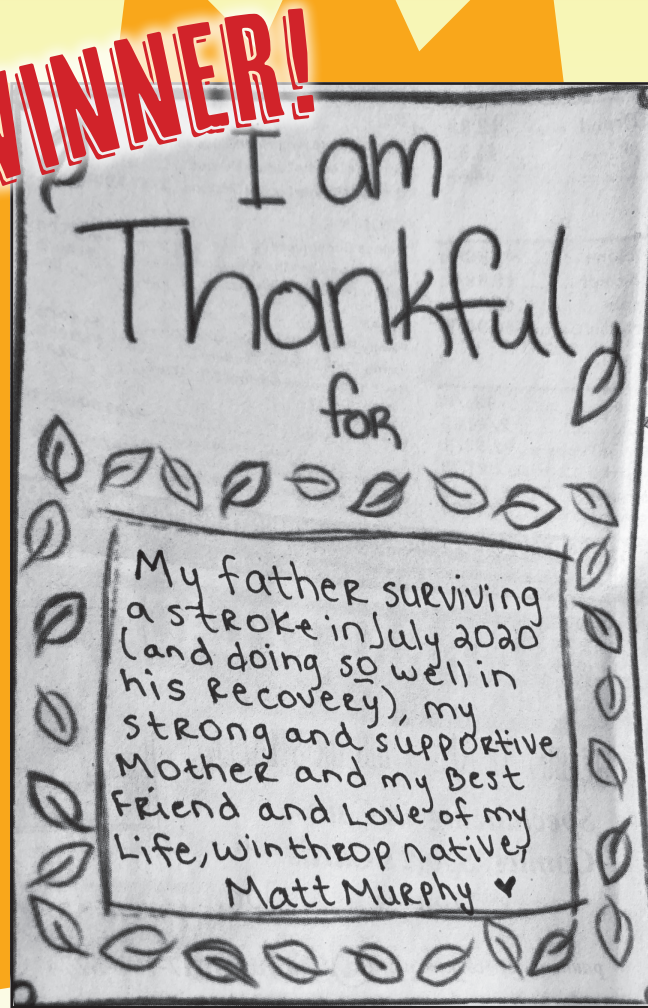 WINNER!
I am
Thankful
for
My father surviving
a stroke in July 2020
(and doing so well in
his recovery), my
strong and supportive
Mother and my Best
Friend and Love of my
Life, Winthrop native,
Matt Murphy ♥